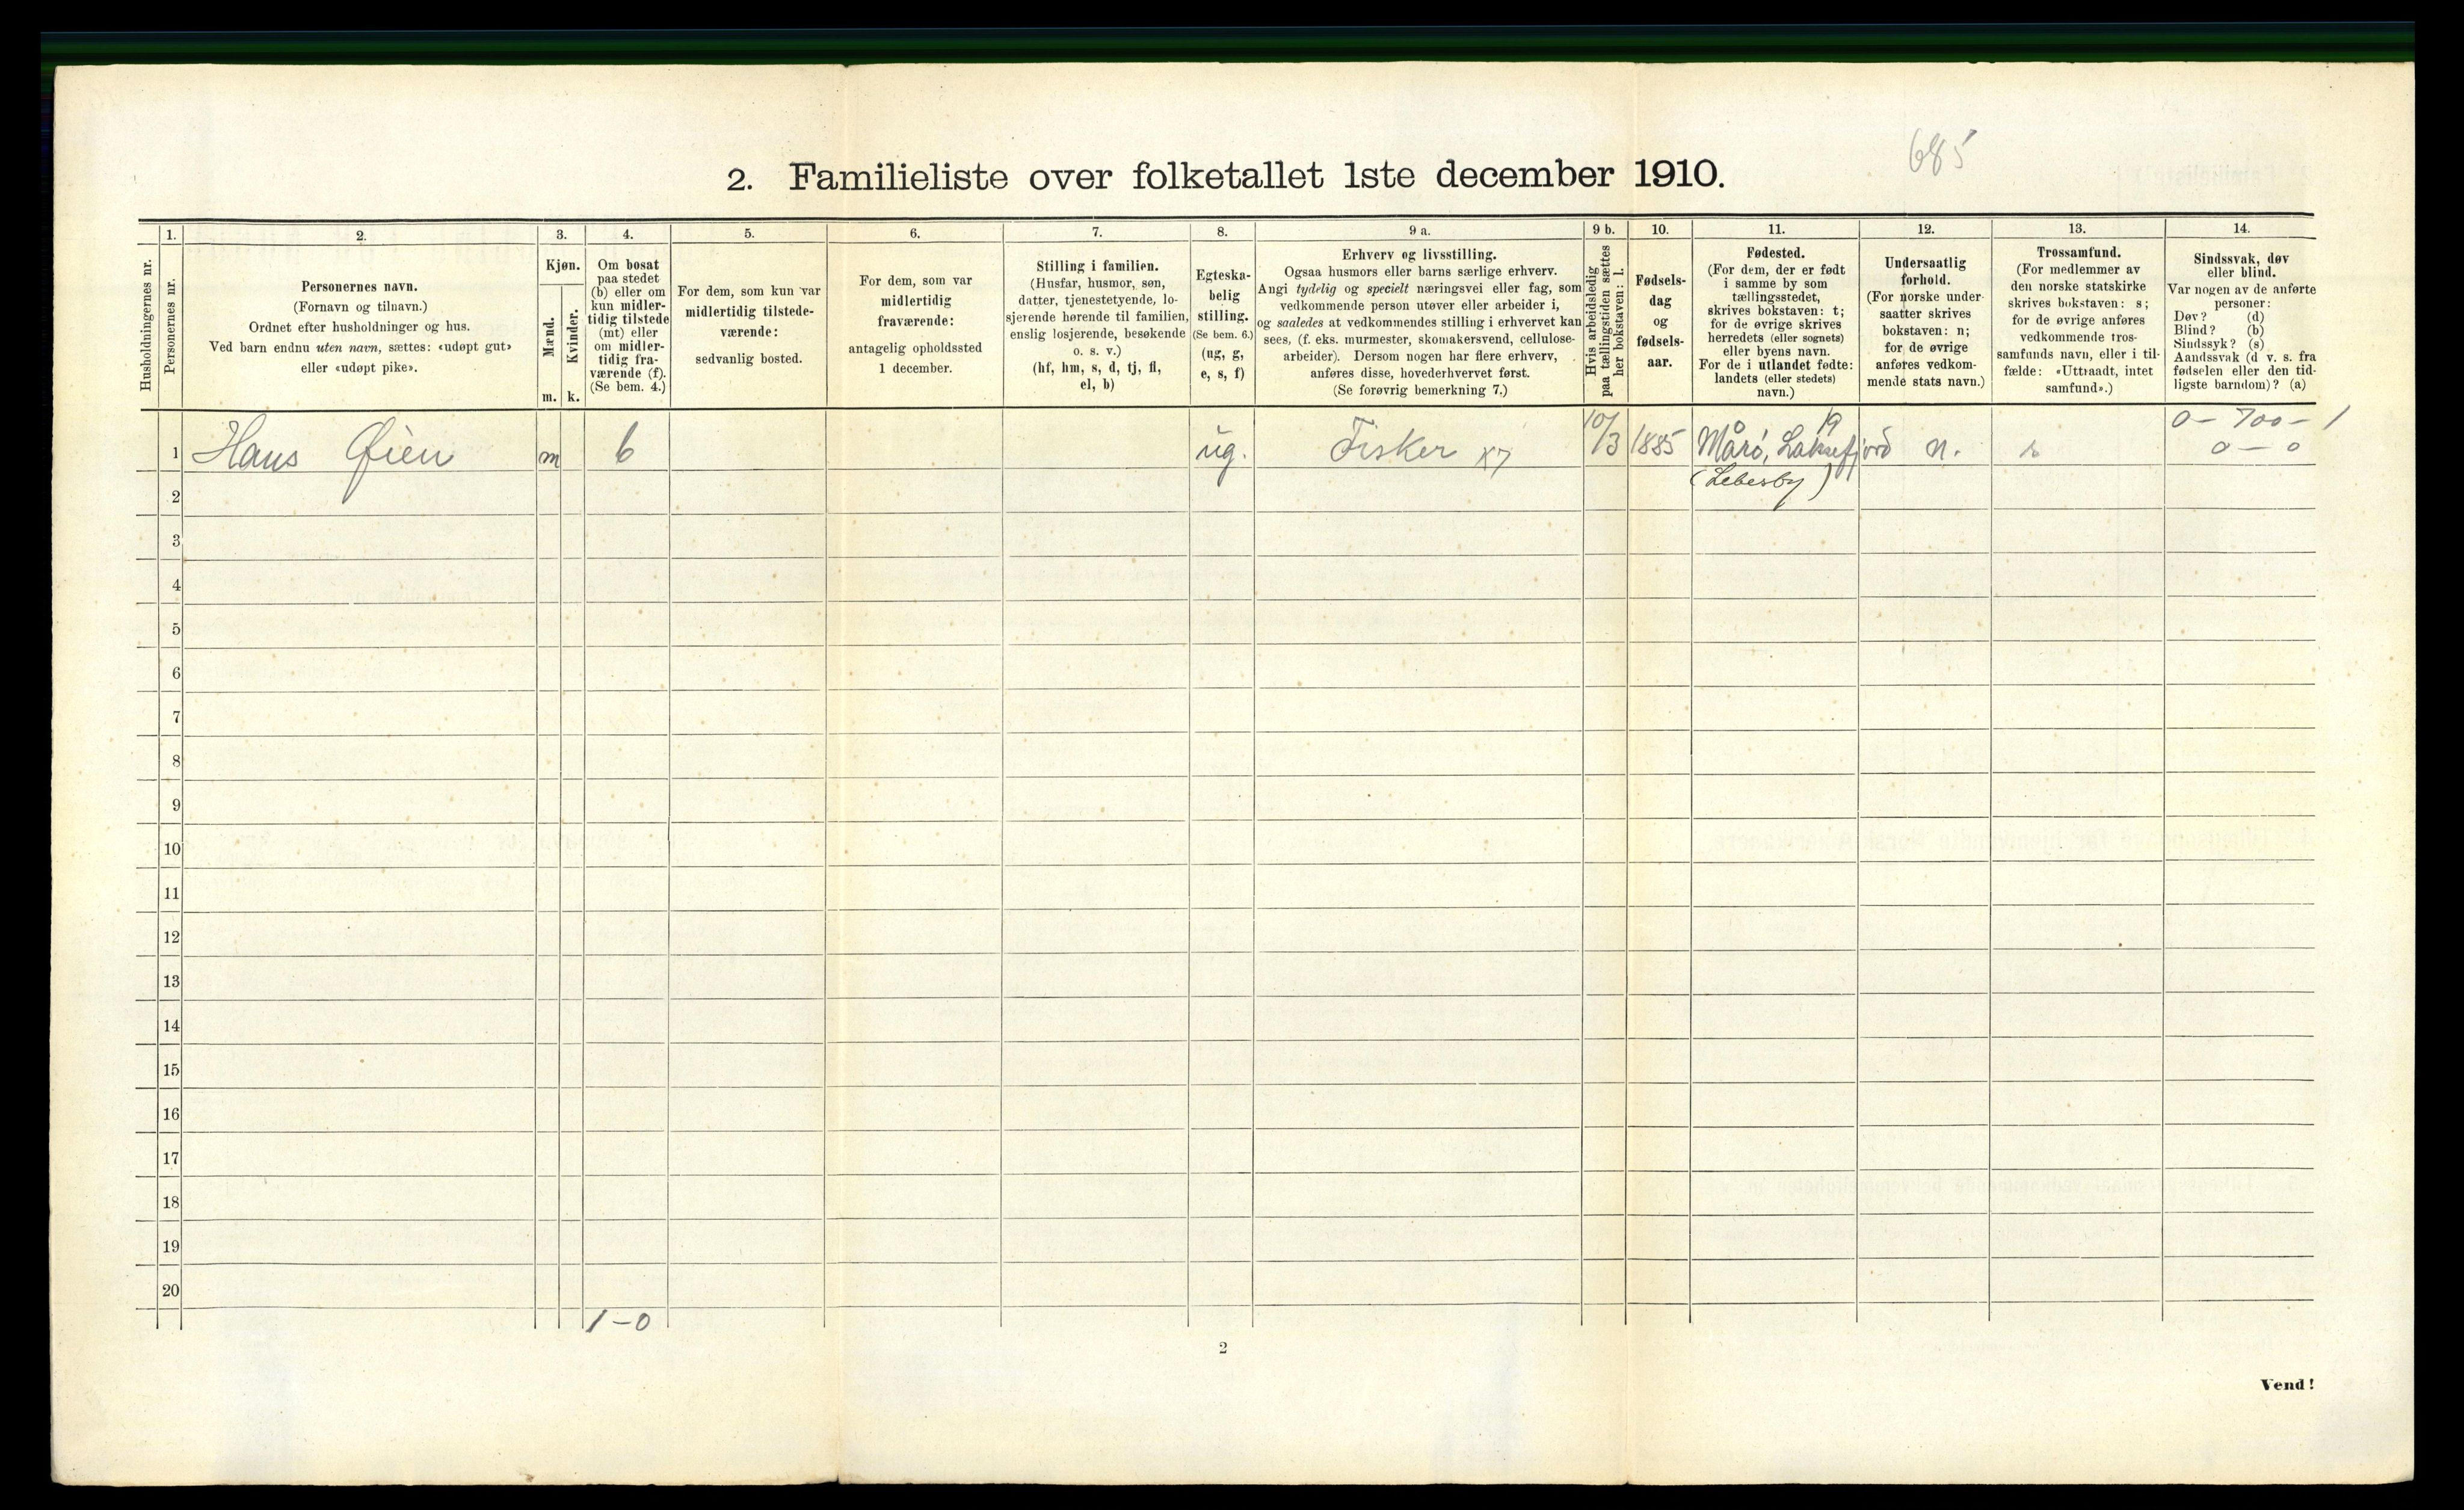 685
2. Familieliste over folketallet 1ste december 1910.
Husholdningernes nr.
1.
Personernes nr.
2.
Personernes navn.
(Fornavn og tilnavn.)
Ordnet efter husholdninger og hus.
Ved barn endnu uten navn, sættes: «udøpt gut»
eller «udøpt pike».
3.
Kjøn.
Mænd.
Kvinder.
m. k.
4.
Om bosat
paa stedet
(b) eller om
kun midler-
tidig tilstede
(mt) eller
om midler-
tidig fra-
værende (f).
(Se bem. 4.)
5.
For dem, som kun var
midlertidig tilstede-
værende:
sedvanlig bosted.
6.
For dem, som var
midlertidig
fraværende:
antagelig opholdssted
1 december.
7.
Stilling i familien.
(Husfar, husmor, søn,
datter, tjenestetyende, lo-
sjerende hørende til familien,
enslig losjerende, besøkende
o. s. v.)
(hf, hm, s, d, tj, fl,
el, b)
8.
Egteska-
belig
stilling.
(Se bem. 6.)
(ug, g,
e, s, f)
9 a.
Erhverv og livsstilling.
Ogsaa husmors eller barns særlige erhverv.
Angi tydelig og specielt næringsvei eller fag, som
vedkommende person utøver eller arbeider i,
og saaledes at vedkommendes stilling i erhvervet kan
sees, (f. eks. murmester, skomakersvend, cellulose-
arbeider). Dersom nogen har flere erhverv,
anføres disse, hovederhvervet først.
(Se forøvrig bemerkning 7.)
9 b.
Hvis arbeidsledig
paa tællingstiden sættes
her bokstaven: l.
10.
Fødsels-
dag
og
fødsels-
aar.
11.
Fødested.
(For dem, der er født
i samme by som
tællingsstedet,
skrives bokstaven: t;
for de øvrige skrives
herredets (eller sognets)
eller byens navn.
For de i utlandet fødte:
landets (eller stedets)
navn.)
12.
Undersaatlig
forhold.
(For norske under-
saatter skrives
bokstaven: n;
for de øvrige
anføres vedkom-
mende stats navn.)
13.
Trossamfund.
(For medlemmer av
den norske statskirke
skrives bokstaven: s;
for de øvrige anføres
vedkommende tros-
samfunds navn, eller i til-
fælde: «Uttraadt, intet
samfund».)
14.
Sindssvak, døv
eller blind.
Var nogen av de anførte
personer:
Døv? (d)
Blind? (b)
Sindssyk? (s)
Aandssvak (d v. s. fra
fødselen eller den tid-
ligste barndom)? (a)
1 Hans Øien m b ug. Fisker x7 10/3 1885 19 Mårö, Laksefjord n. s 0 – 700 – 1
0 – 0
2 (Lebesby)
3
4
5
6
7
8
9
10
11
12
13
14
15
16
17
18
19
20
1 – 0
2
Vend!